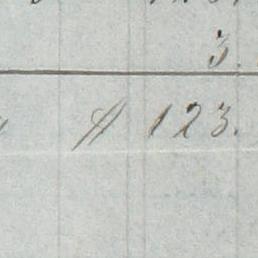 3.
$ 123.